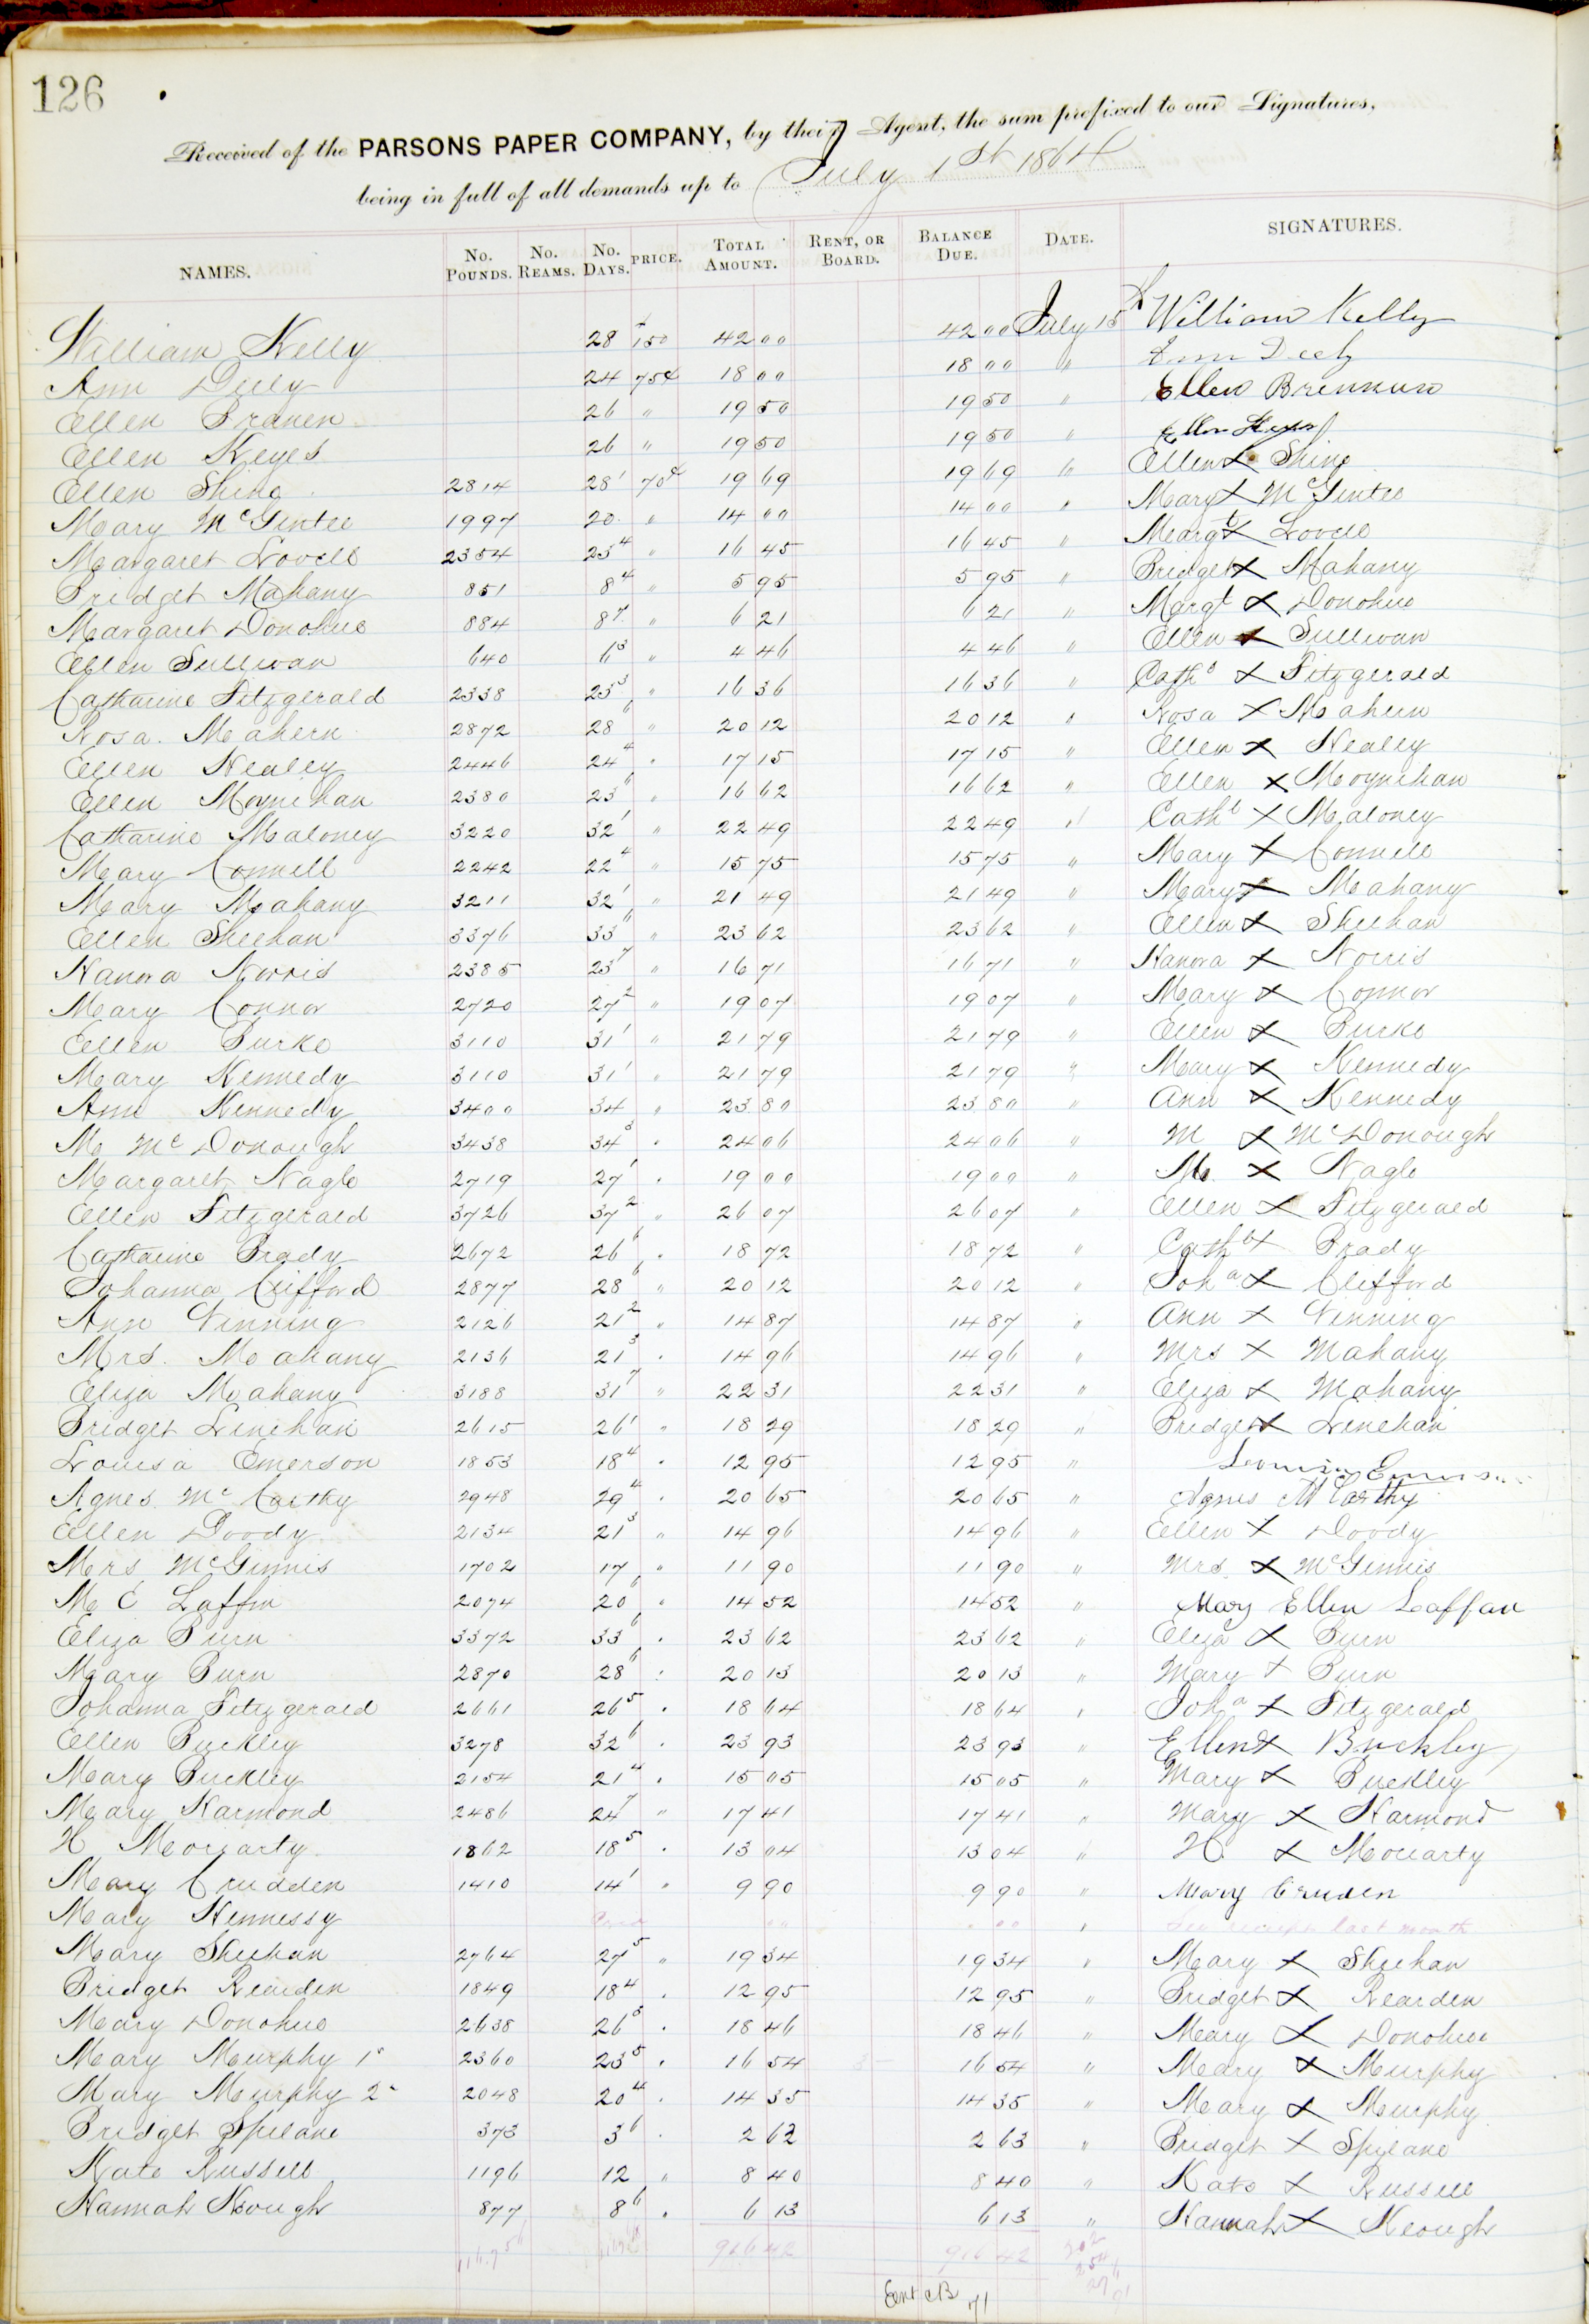 126
Received of the PARSONS PAPER COMPANY, by their Agent, the sum prefixed to our Signatures,
being in full of all demands up to July 1st 1864
NAMES. No. POUNDS. No. REAMS. No. DAYS. PRICE. TOTAL AMOUNT. RENT, OR BOARD. BALANCE DUE. DATE. SIGNATURES.
William Kelly 28 150 42 00 42 00 July 15 X William Kelly
Ann Deely 24 75c 18 00 18 00 "
Ellen Branen 26 " 19 50 19 50 " Ellen Brennan
Ellen Keyes 26 " 19 50 19 50 " Ellen Keyes
Ellen Shine 2814 28 1 70c 19 69 19 69 " Ellen X Shine
Mary McGintee 1997 20 " 14 00 14 00 " Mary X McGintee
Margaret Lovell 2354 23 4 " 16 45 16 45 " Margt X Lovell
Bridget Mahany 851 8 4 " 5 95 5 95 " Bridget X Mahany
Margaret Donohue 884 8 7 " 6 21 6 21 " Margt X Donohue
Ellen Sullivan 640 6 3 " 4 46 4 46 " Ellen X Sullivan
Catharine Fitzgerald 2338 23 3 " 16 36 16 36 " Cathe X Fitzgerald
Rosa Mahern 2872 28 6 " 20 12 20 12 " Rosa X Mahern
Ellen Nealey 2446 24 4 " 17 15 17 15 " Ellen X Nealey
Ellen Moynehan 2380 23 6 " 16 62 16 62 " Ellen X Moynehan
Catharine Maloney 3220 32 1 " 22 49 22 49 " Catht X Maloney
Mary Connell 2242 22 4 " 15 75 15 75 " Mary X Connell
Mary Mahany 3211 32 1 " 21 49 21 49 " Mary X Mahany
Ellen Sheehan 3376 33 6 " 23 62 23 62 " Ellen X Sheehan
Hanora Norris 2385 23 7 " 16 71 16 71 " Hanora X Norris
Mary Connor 2720 27 2 " 19 07 19 07 " Mary X Connor
Ellen Burke 3110 31 1 " 21 79 21 79 " Ellen X Burke
Mary Kennedy 3110 31 1 " 21 79 21 79 " Mary X Kennedy
Ann Kennedy 3400 34 " 23 80 23 80 " Ann X Kennedy
M McDonough 3438 34 3 " 24 06 24 06 " M X McDonough
Margaret Nagle 2719 27 1 " 19 00 19 00 " M. X Nagle
Ellen Fitzgerald 3726 37 2 " 26 07 26 07 " Ellen X Fitzgerald
Catharine Brady 2672 26 6 " 18 72 18 72 " Catht X Brady
Johanna Clifford 2877 28 6 " 20 12 20 12 " Joha X Clifford
Ann Vinning 2126 21 2 " 14 87 14 87 " Ann X Vinning
Mrs. Mahany 2136 21 3 " 14 96 14 96 " Mrs X Mahany
Eliza Mahany 3188 31 7 " 22 31 22 31 " Eliza X Mahany
Bridget Linehan 2615 26 1 " 18 29 18 29 " Bridget X Linehan
Louisa Emerson 1853 18 4 " 12 95 12 95 "
Agnes McCarthy 2948 29 4 " 20 65 20 65 " Agnes McCarthy
Ellen Doody 2134 21 3 " 14 96 14 96 " Ellen X Doody
Mrs McGinnis 1702 17 " 11 90 11 90 " Mrs. X McGinnis
M E Laffin 2074 20 6 " 14 52 14 52 " Mary Ellen Leaffan
Eliza Burn 3372 33 6 " 23 62 23 62 " Eliza X Burn
Mary Burn 2870 28 6 " 20 13 20 13 " Mary X Burn
Johanna Fitzgerald 2661 26 5 " 18 64 18 64 " Joha X Fitzgerald
Ellen Buckley 3278 32 6 " 23 93 23 93 " Ellen X Buckley
Mary Buckley 2154 21 4 " 15 05 15 05 " Mary X Buckley
Mary Harmond 2486 24 7 " 17 41 17 41 " Mary X Harmond
H Moriarty 1862 18 5 " 13 04 13 04 " H. X Moriarty
Mary Crudden 1410 14 1 " 9 90 9 90 " Mary Cruden
Mary Hennessy 00 00 " last month
Mary Sheehan 2764 27 5 " 19 34 19 34 " Mary X Sheehan
Bridget Rearden 1849 18 4 " 12 95 12 95 " Bridget X Rearden
Mary Donohue 2638 26 3 " 18 46 18 46 " Mary X Donohue
Mary Murphy 1" 2360 23 5 " 16 54 16 54 " Mary X Murphy
Mary Murphy 2" 2048 20 4 " 14 35 14 35 " Mary X Murphy
Bridget Spelane 373 3 6 " 2 63 2 63 " Bridget X Spelane
Kate Russell 1196 12 " 8 40 8 40 " Kate X Russell
Hannah Keough 877 8 6 " 6 13 6 13 " Hannah X Keough
916 42 916 42
71